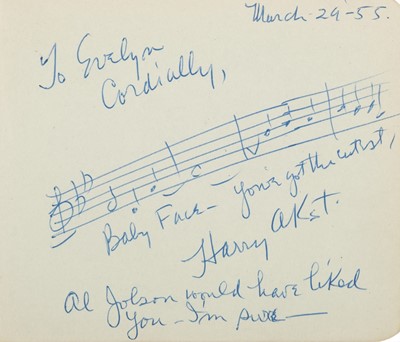 March-29-55.
To Evelyn
Cordially,
Baby Face — You've got the cutest,
Harry Akst.
Al Jolson would have liked
you — I'm sure —